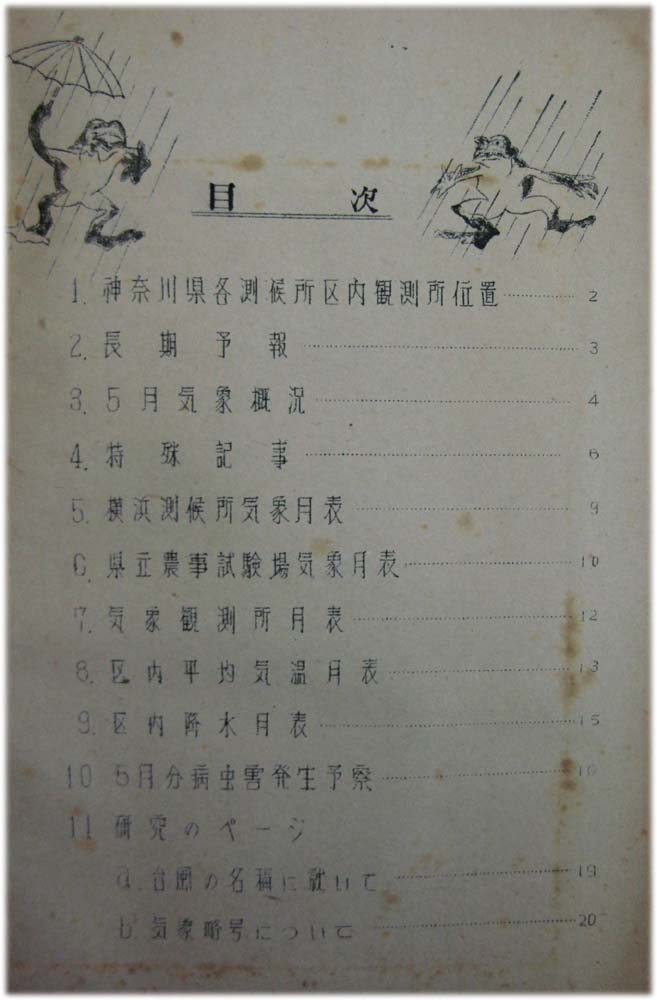 目次
1. 神奈川県各測候所区内観測所位置 2
2. 長期予報 3
3. 5月気象概況 4
4. 特殊記事 6
5. 横浜測候所気象月表 9
6. 県立農事試験場気象月表 10
7. 気象観測所月表 12
8. 区内平均気温月表 13
9. 区内降水月表 15
10 5月分病虫害発生予察 16
11 研究のページ
a. 台風の名称に就いて 19
b. 気象略号について 20